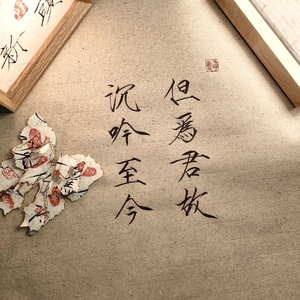 但為君故
沉吟至今